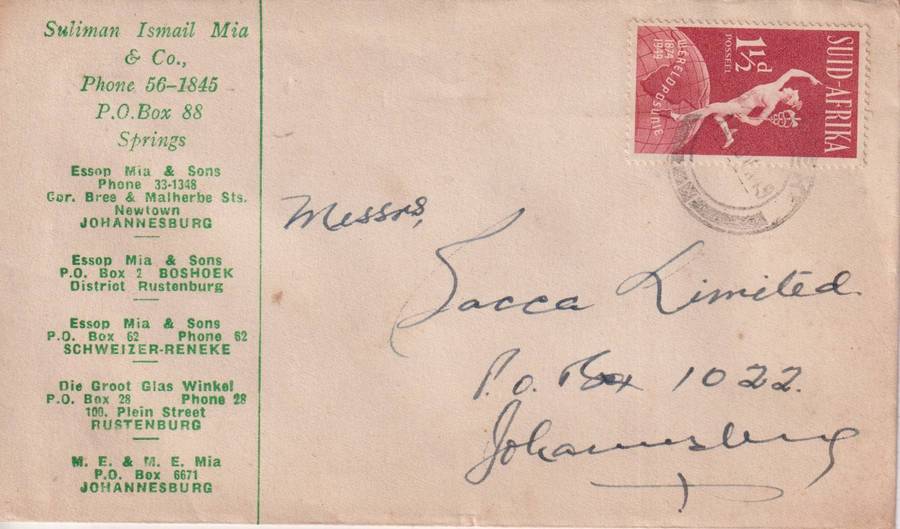 Suliman Ismail Mia
& Co.,
Phone 56-1845
P.O.Box 88
Springs
Essop Mia & Sons
Phone 33-1348
Cor. Bree & Malherbe Sts.
Newtown
JOHANNESBURG
Essop Mia & Sons
P.O. Box 2 BOSHOEK
District Rustenburg
Essop Mia & Sons
P.O. Box 62 Phone 62
SCHWEIZER-RENEKE
Die Groot Glas Winkel
P.O. Box 28 Phone 28
100, Plein Street
RUSTENBURG
M. E. & M. E. Mia
P.O. Box 6671
JOHANNESBURG
SUID-AFRIKA
1½d
POSSEËL
1874
1949
WÊRELDPOSUNIE
Messrs,
Sacca Limited
P.O. Box 1022.
Johannesburg